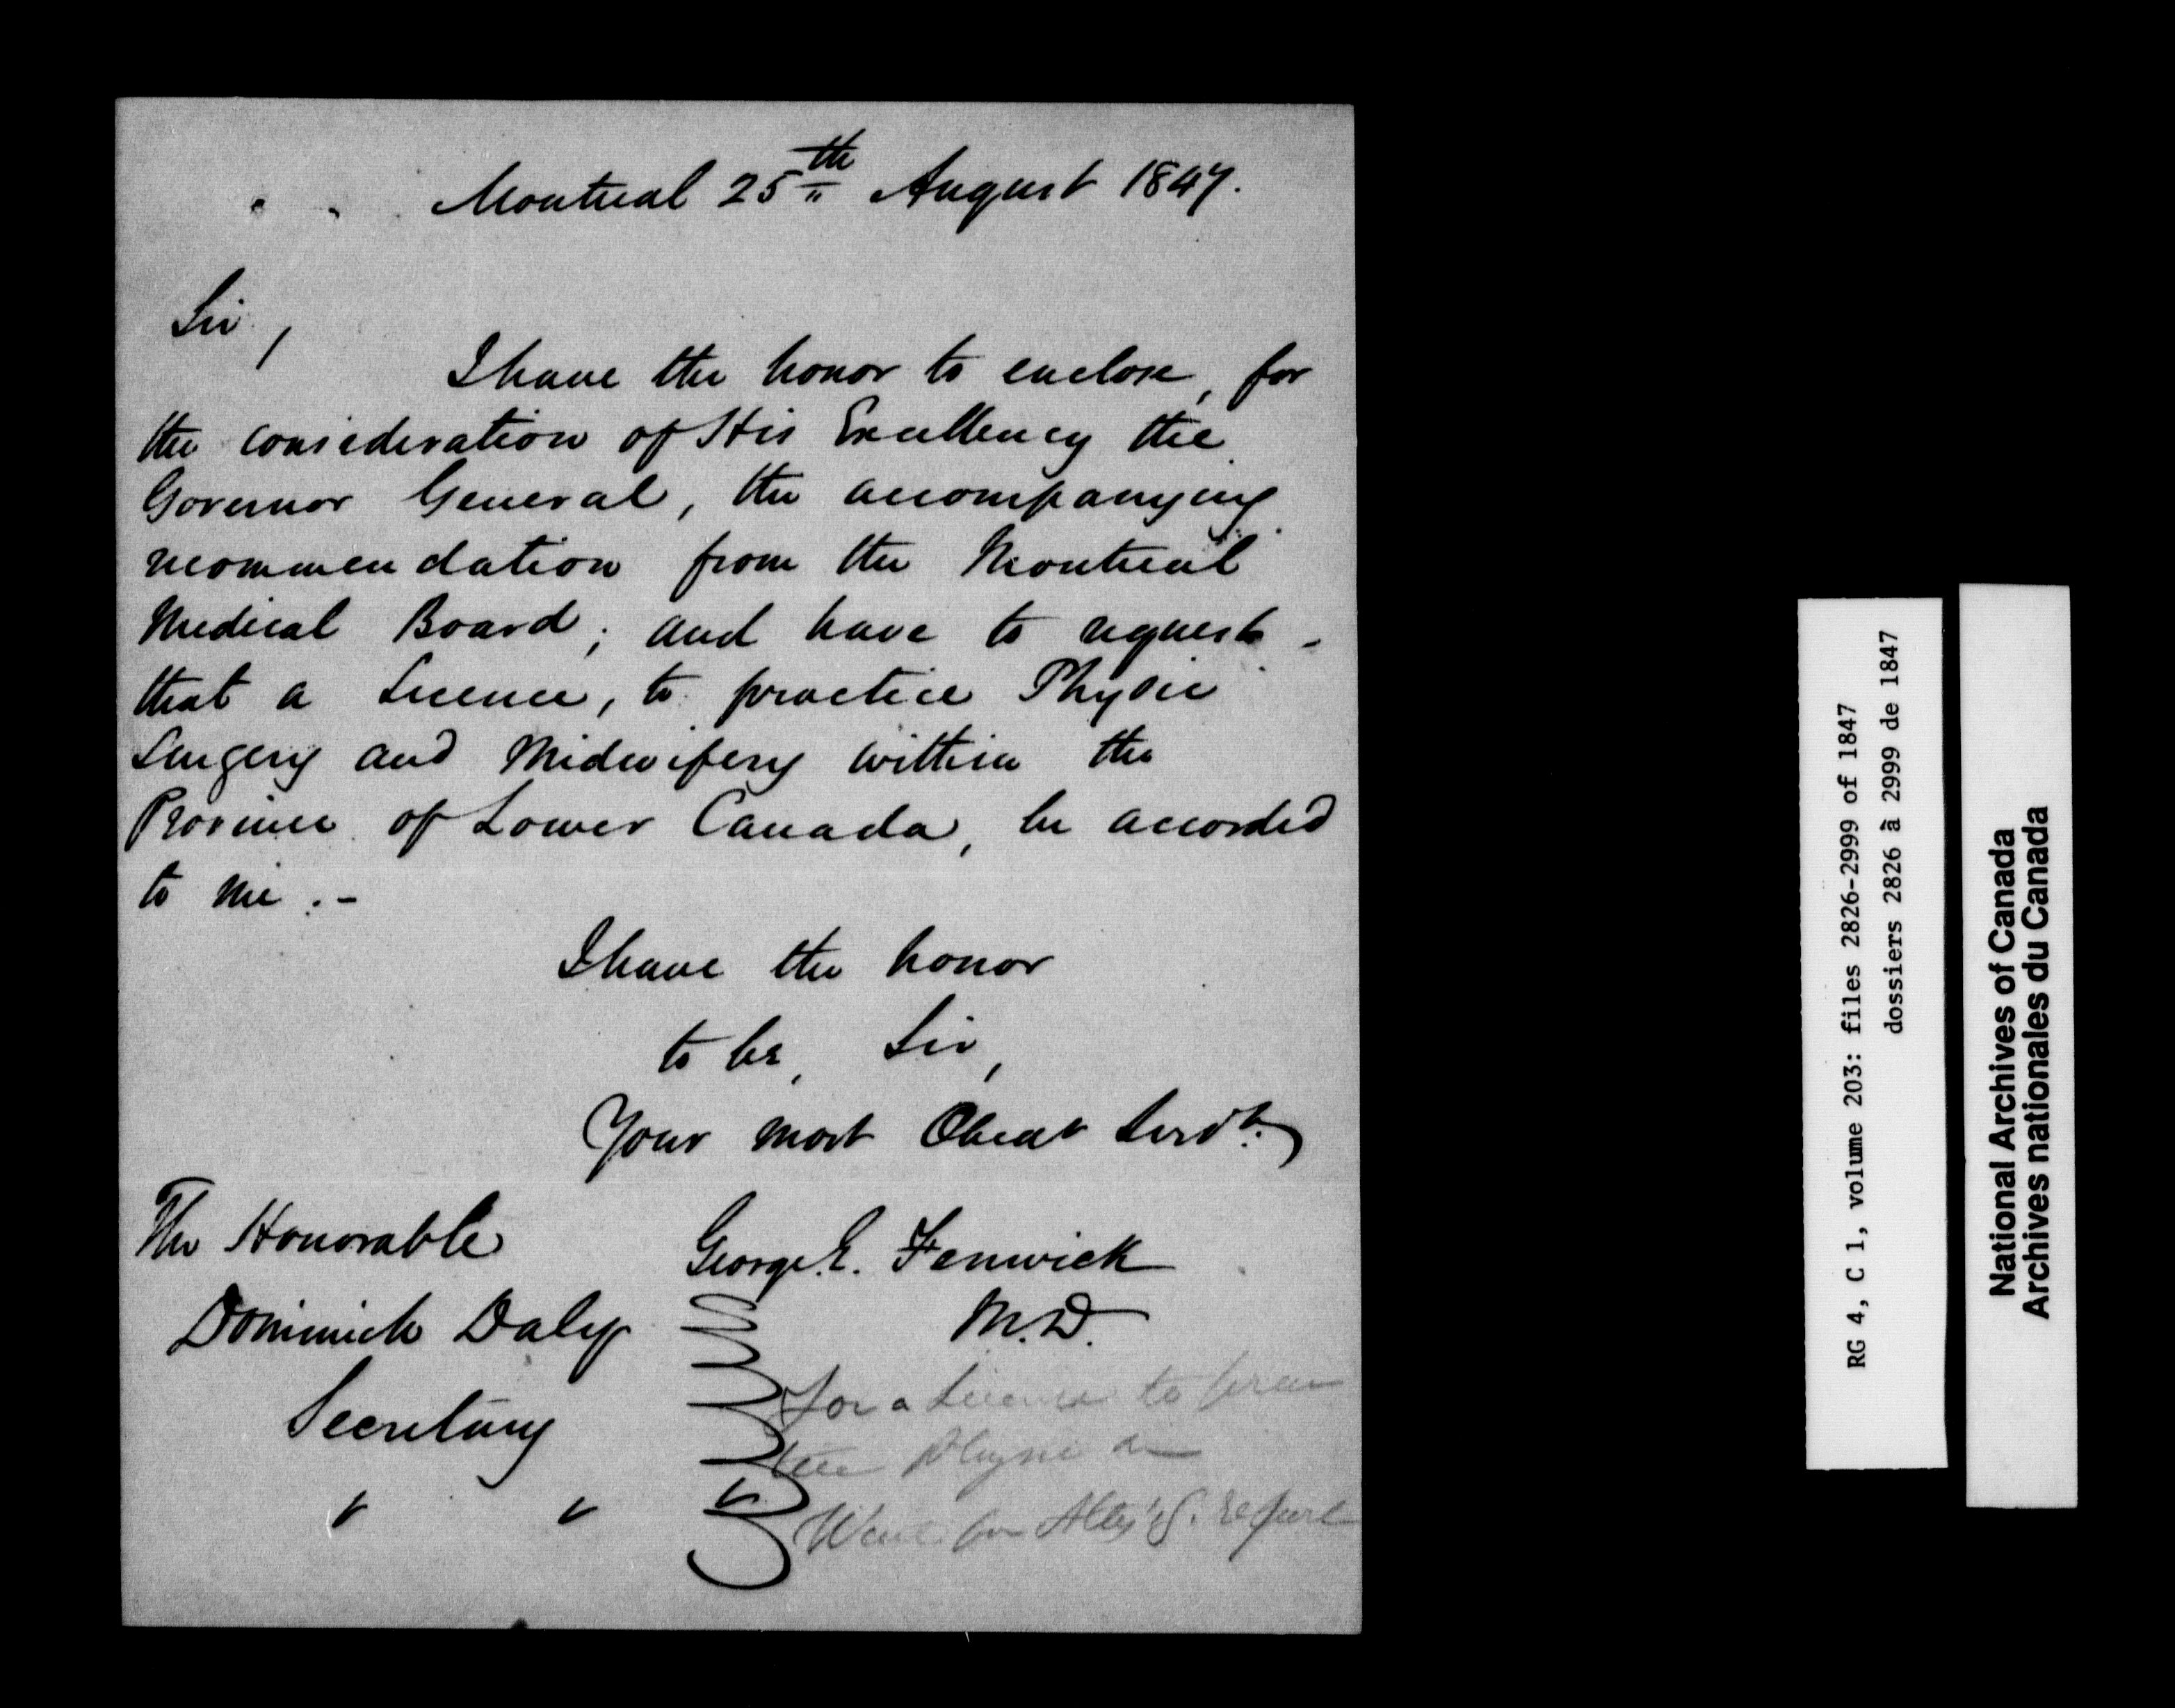 Montreal 25th August 1847.
Sir,
I have the honor to enclose, for
the consideration of His Excellency the
Governor General, the accompanying
recommendation from the Montreal
Medical Board; and have to request -
that a Licence, to practice Physic
Surgery and Midwifery within the
Province of Lower Canada, be accorded
to me. -
I have the honor
to be, Sir,
Your most Obedt Servt.
The Honorable
Dominick Daly
Secretary
" "
George E. Fenwick
M.D.
for a Licence to prac
tice Physic &
Went for Atty G. report
RG 4, C 1, volume 203: files 2826-2999 of 1847
dossiers 2826 à 2999 de 1847
National Archives of Canada
Archives nationales du Canada